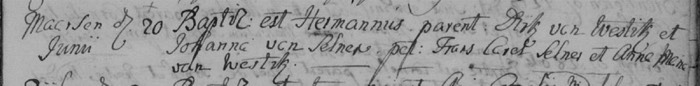 Maersen d. 20 Baptiz: est Hermannus parent. Dirk van Westik et
Junii Johanna van Selnes pat: Frans Carel Selnes et Anna Mar:
van Westik.